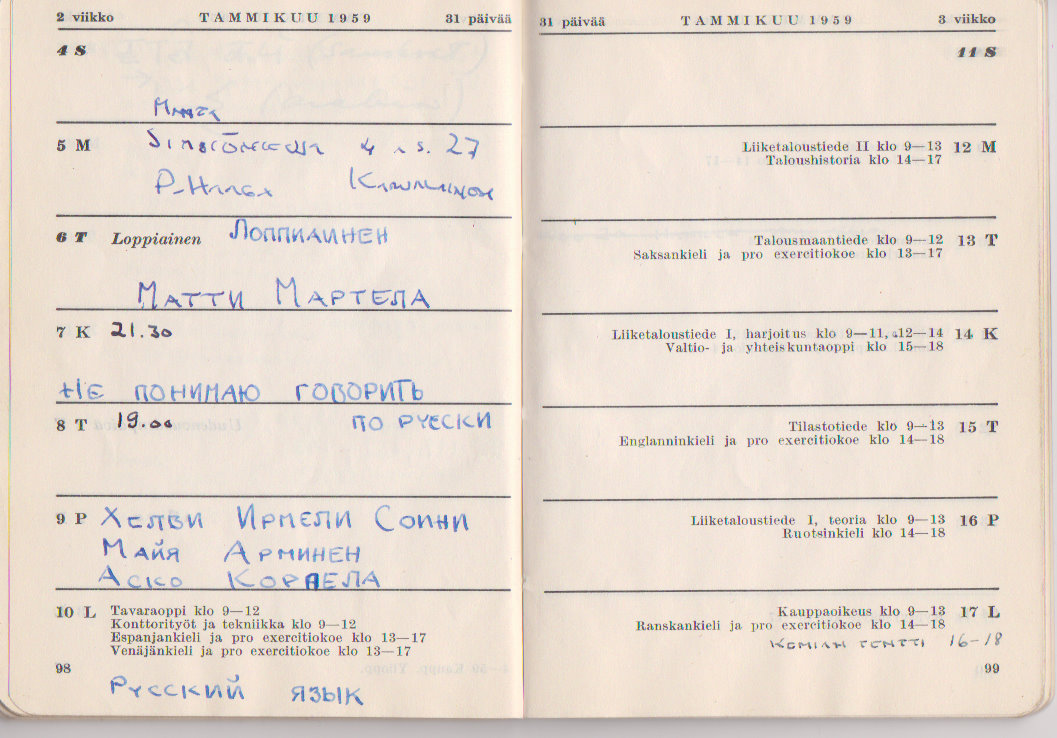 2 viikko TAMMIKUU 1959 31 päivää
4 S
5 M
4 s. 27
6 T Loppiainen Лоппиаинен
Матти Мартела
7 K 21.30
Не понимаю говорить
8 T 19.00 по русски
9 P Хелви Ирмели Соини
Майя Арминен
Аско Корпела
10 L Tavaraoppi klo 9—12
Konttorityöt ja tekniikka klo 9—12
Espanjankieli ja pro exercitiokoe klo 13—17
Venäjänkieli ja pro exercitiokoe klo 13—17
98
Русский язык
31 päivää TAMMIKUU 1959 3 viikko
11 S
Liiketaloustiede II klo 9—13 12 M
Taloushistoria klo 14—17
Talousmaantiede klo 9—12 13 T
Saksankieli ja pro exercitiokoe klo 13—17
Liiketaloustiede I, harjoitus klo 9—11, 12—14 14 K
Valtio- ja yhteiskuntaoppi klo 15—18
Tilastotiede klo 9—13 15 T
Englanninkieli ja pro exercitiokoe klo 14—18
Liiketaloustiede I, teoria klo 9—13 16 P
Ruotsinkieli klo 14—18
Kauppaoikeus klo 9—13 17 L
Ranskankieli ja pro exercitiokoe klo 14—18
Kemian tentti 16-18
99